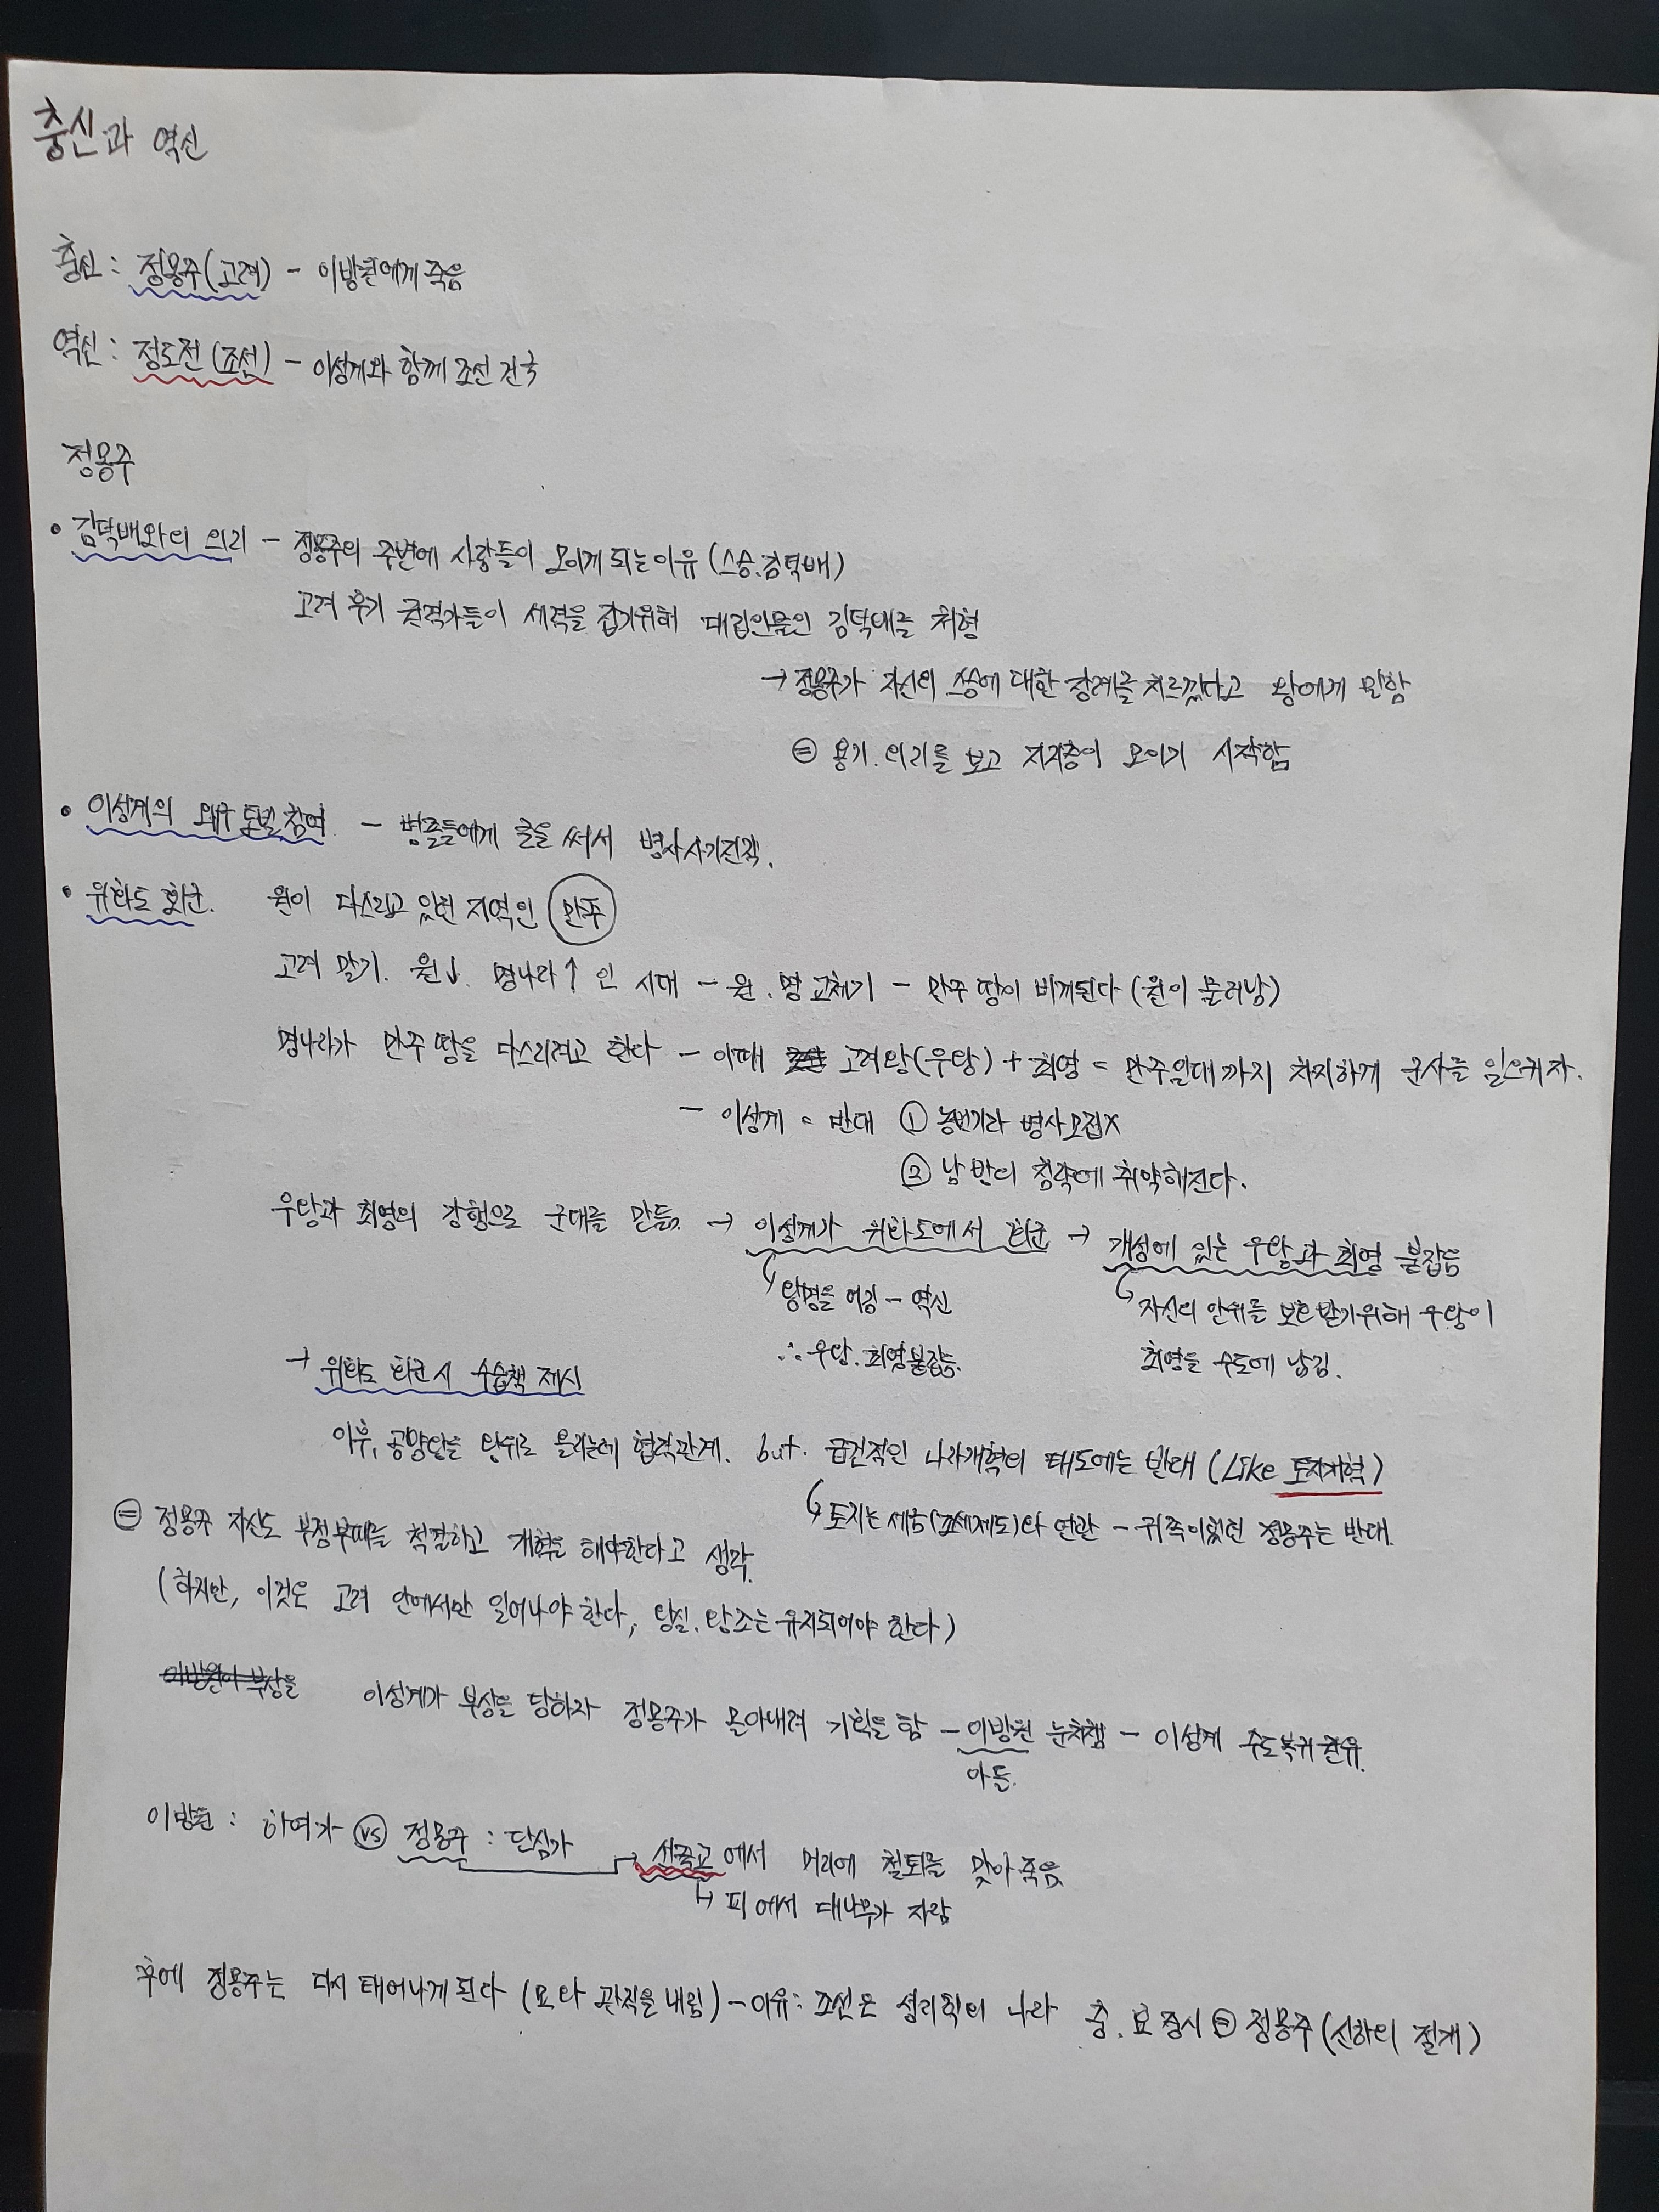 충신과 역신
충신 : 정몽주(고려) - 이방원에게 죽음
역신 : 정도전(조선) - 이성계와 함께 조선 건국
정몽주
• 김덕배와의 의리 - 정몽주의 주변에 사람들이 모이게 되는 이유 (스승.김덕배)
고려 후기 권력가들이 세력을 잡기위해 대립인물인 김덕배를 처형
→ 정몽주가 자신의 스승에 대한 장례를 치르겠다고 왕에게 말함
⊜ 용기. 의리를 보고 지지층이 모이기 시작함
• 이성계의 왜구 토벌 참여 - 병졸들에게 글을 써서 병사사기진작.
• 위화도 회군. 원이 다스리고 있던 지역인 만주
고려 말기. 원↓. 명나라↑ 인 시대 - 원.명 교체기 - 만주 땅이 비게된다 (원이 물러남)
명나라가 만주 땅을 다스리려고 한다 - 이때 고려왕(우왕) + 최영 = 만주일대까지 차지하게 군사를 일으키자.
- 이성계 = 반대 ① 농번기라 병사모집X
② 남반의 침략에 취약해진다.
우왕과 최영의 강행으로 군대를 만듦. → 이성계가 위화도에서 회군 → 개성에 있는 우왕과 최영 붙잡음
왕명을 어김 - 역신
자신의 안위를 보호받기위해 우왕이
∴ 우왕.최영붙잡음.
최영을 수도에 남김.
→ 위화도 회군시 수습책 제시
이후, 공양왕을 왕위로 올리는데 협력관계. but. 급진적인 나라개혁의 태도에는 반대 (Like 토지개혁)
토지는 세금(조세제도)와 연관 - 귀족이었던 정몽주는 반대.
⊜ 정몽주 자신도 부정부패를 척결하고 개혁을 해야한다고 생각.
(하지만, 이것은 고려 안에서만 일어나야 한다, 왕실.왕조는 유지되어야 한다)
이방원이 부상을 이성계가 부상을 당하자 정몽주가 몰아내려 기획을 함 - 이방원 눈치챔 - 이성계 수도복귀 권유.
아들.
이방원 : 하여가 vs 정몽주 : 단심가 → 선죽교에서 머리에 철퇴를 맞아 죽음
↳ 피에서 대나무가 자람
후에 정몽주는 다시 태어나게 된다 (묘와 관직을 내림) - 이유 : 조선은 성리학의 나라 충.효 중시 ⊜ 정몽주 (신하의 절개)